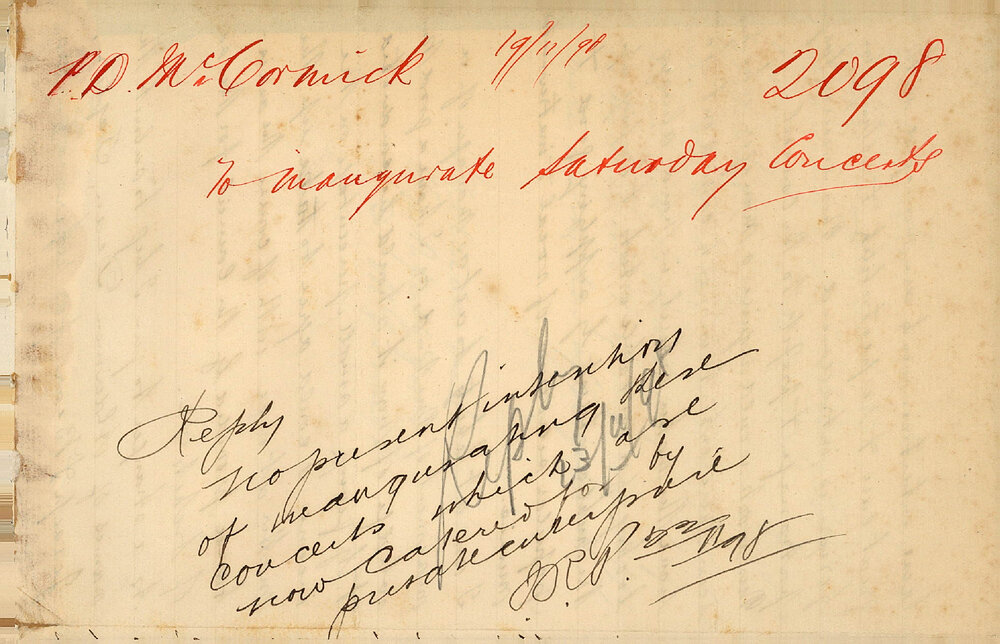 P.D. McCormick 19/11/98 2098
To inaugurate Saturday Concerts
Reply
no present intention
of inaugurating these
concerts which are
now catered for by
private enterprise
J.R.P. 22/11/98
Reply
23/11/98